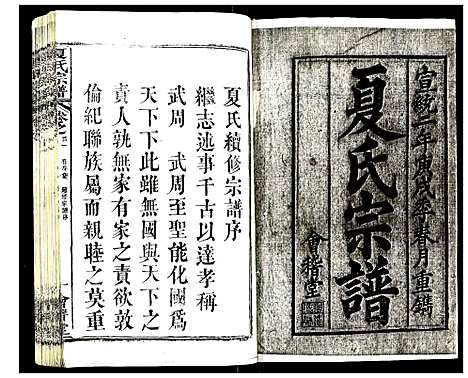 宣統二年庚戌季春月重鐫
夏氏宗譜
會稽堂
夏氏續修宗譜序
繼志述事千古以達孝稱
武周　武周至聖能化國爲
天下天下此雖無國與天下之
責人孰無家有家之責欲敦
倫紀聯族屬而親睦之莫重
夏氏宗譜
卷之
會稽堂